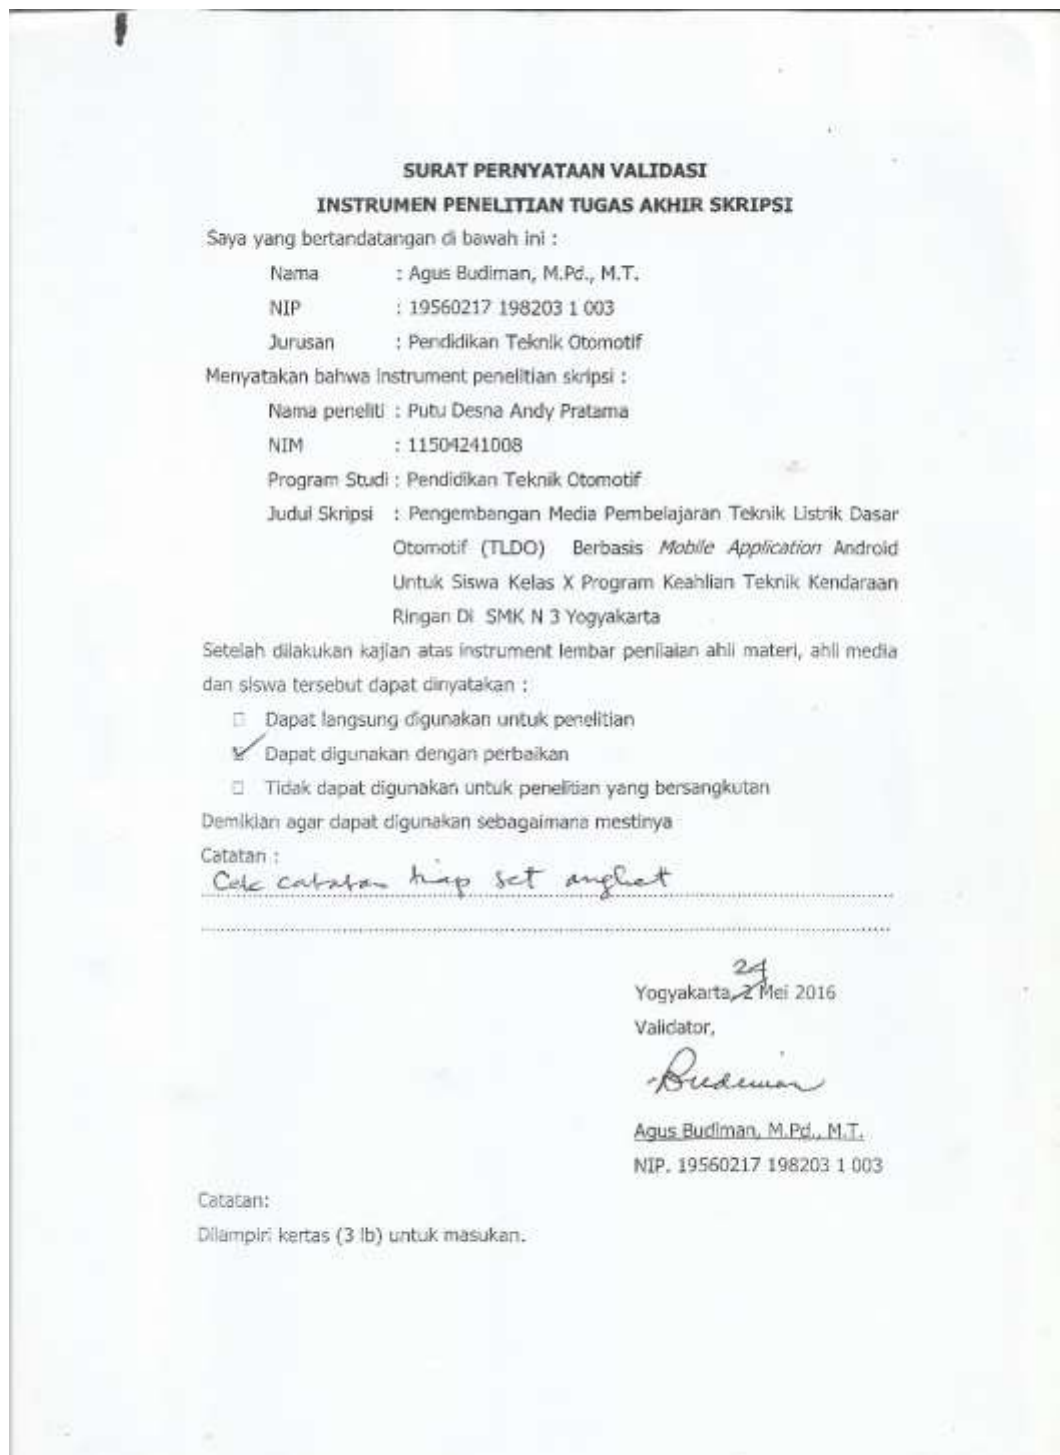 SURAT PERNYATAAN VALIDASI
INSTRUMEN PENELITIAN TUGAS AKHIR SKRIPSI
Saya yang bertandatangan di bawah ini :
Nama : Agus Budiman, M.Pd., M.T.
NIP : 19560217 198203 1 003
Jurusan : Pendidikan Teknik Otomotif
Menyatakan bahwa instrument penelitian skripsi :
Nama peneliti : Putu Desna Andy Pratama
NIM : 11504241008
Program Studi : Pendidikan Teknik Otomotif
Judul Skripsi : Pengembangan Media Pembelajaran Teknik Listrik Dasar
Otomotif (TLDO) Berbasis Mobile Application Android
Untuk Siswa Kelas X Program Keahlian Teknik Kendaraan
Ringan Di SMK N 3 Yogyakarta
Setelah dilakukan kajian atas instrument lembar penilaian ahli materi, ahli media
dan siswa tersebut dapat dinyatakan :
Dapat langsung digunakan untuk penelitian
Dapat digunakan dengan perbaikan
Tidak dapat digunakan untuk penelitian yang bersangkutan
Demikian agar dapat digunakan sebagaimana mestinya
Catatan :
Cek catatan tiap set angket
24
Yogyakarta, 2 Mei 2016
Validator,
Budiman
Agus Budiman, M.Pd., M.T.
NIP. 19560217 198203 1 003
Catatan:
Dilampiri kertas (3 lb) untuk masukan.